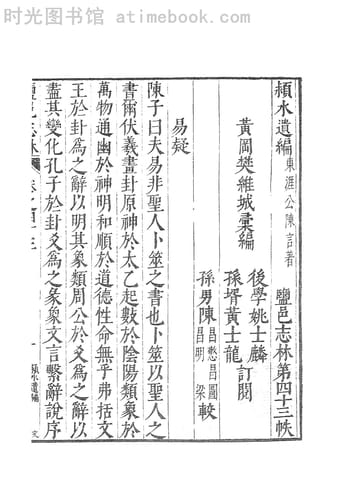 时光图书馆 - atimebook.com
潁水遺編 東涯公陳言著 鹽邑志林第四十三帙
黃岡樊維城彙編
後學姚士麟
孫壻黃士龍 訂閱
孫男陳 昌明 梁較
易疑
陳子曰夫易非聖人卜筮之書也卜筮以聖人之
書爾伏羲畫卦原神於太乙起數於陰陽類象於
萬物通幽於神明和順於道德性命無乎弗括文
王於卦爲之辭以明其象類周公於爻爲之辭以
盡其變化孔子於卦爻爲之彖象文言繫辭說序